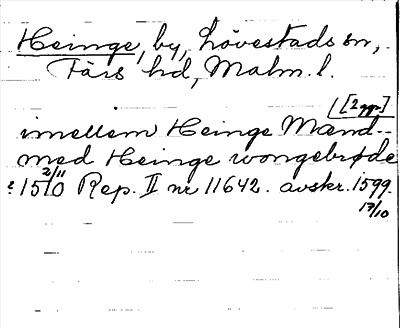 Heinge, by, Lövestads sn,
Färs hd, Malm. l.
[2 ggr]
imellem Heinge Mænd--
med Heinge wongebrøde
2/11
1510 Rep. II nr 11642. avskr. 1599.
17/10